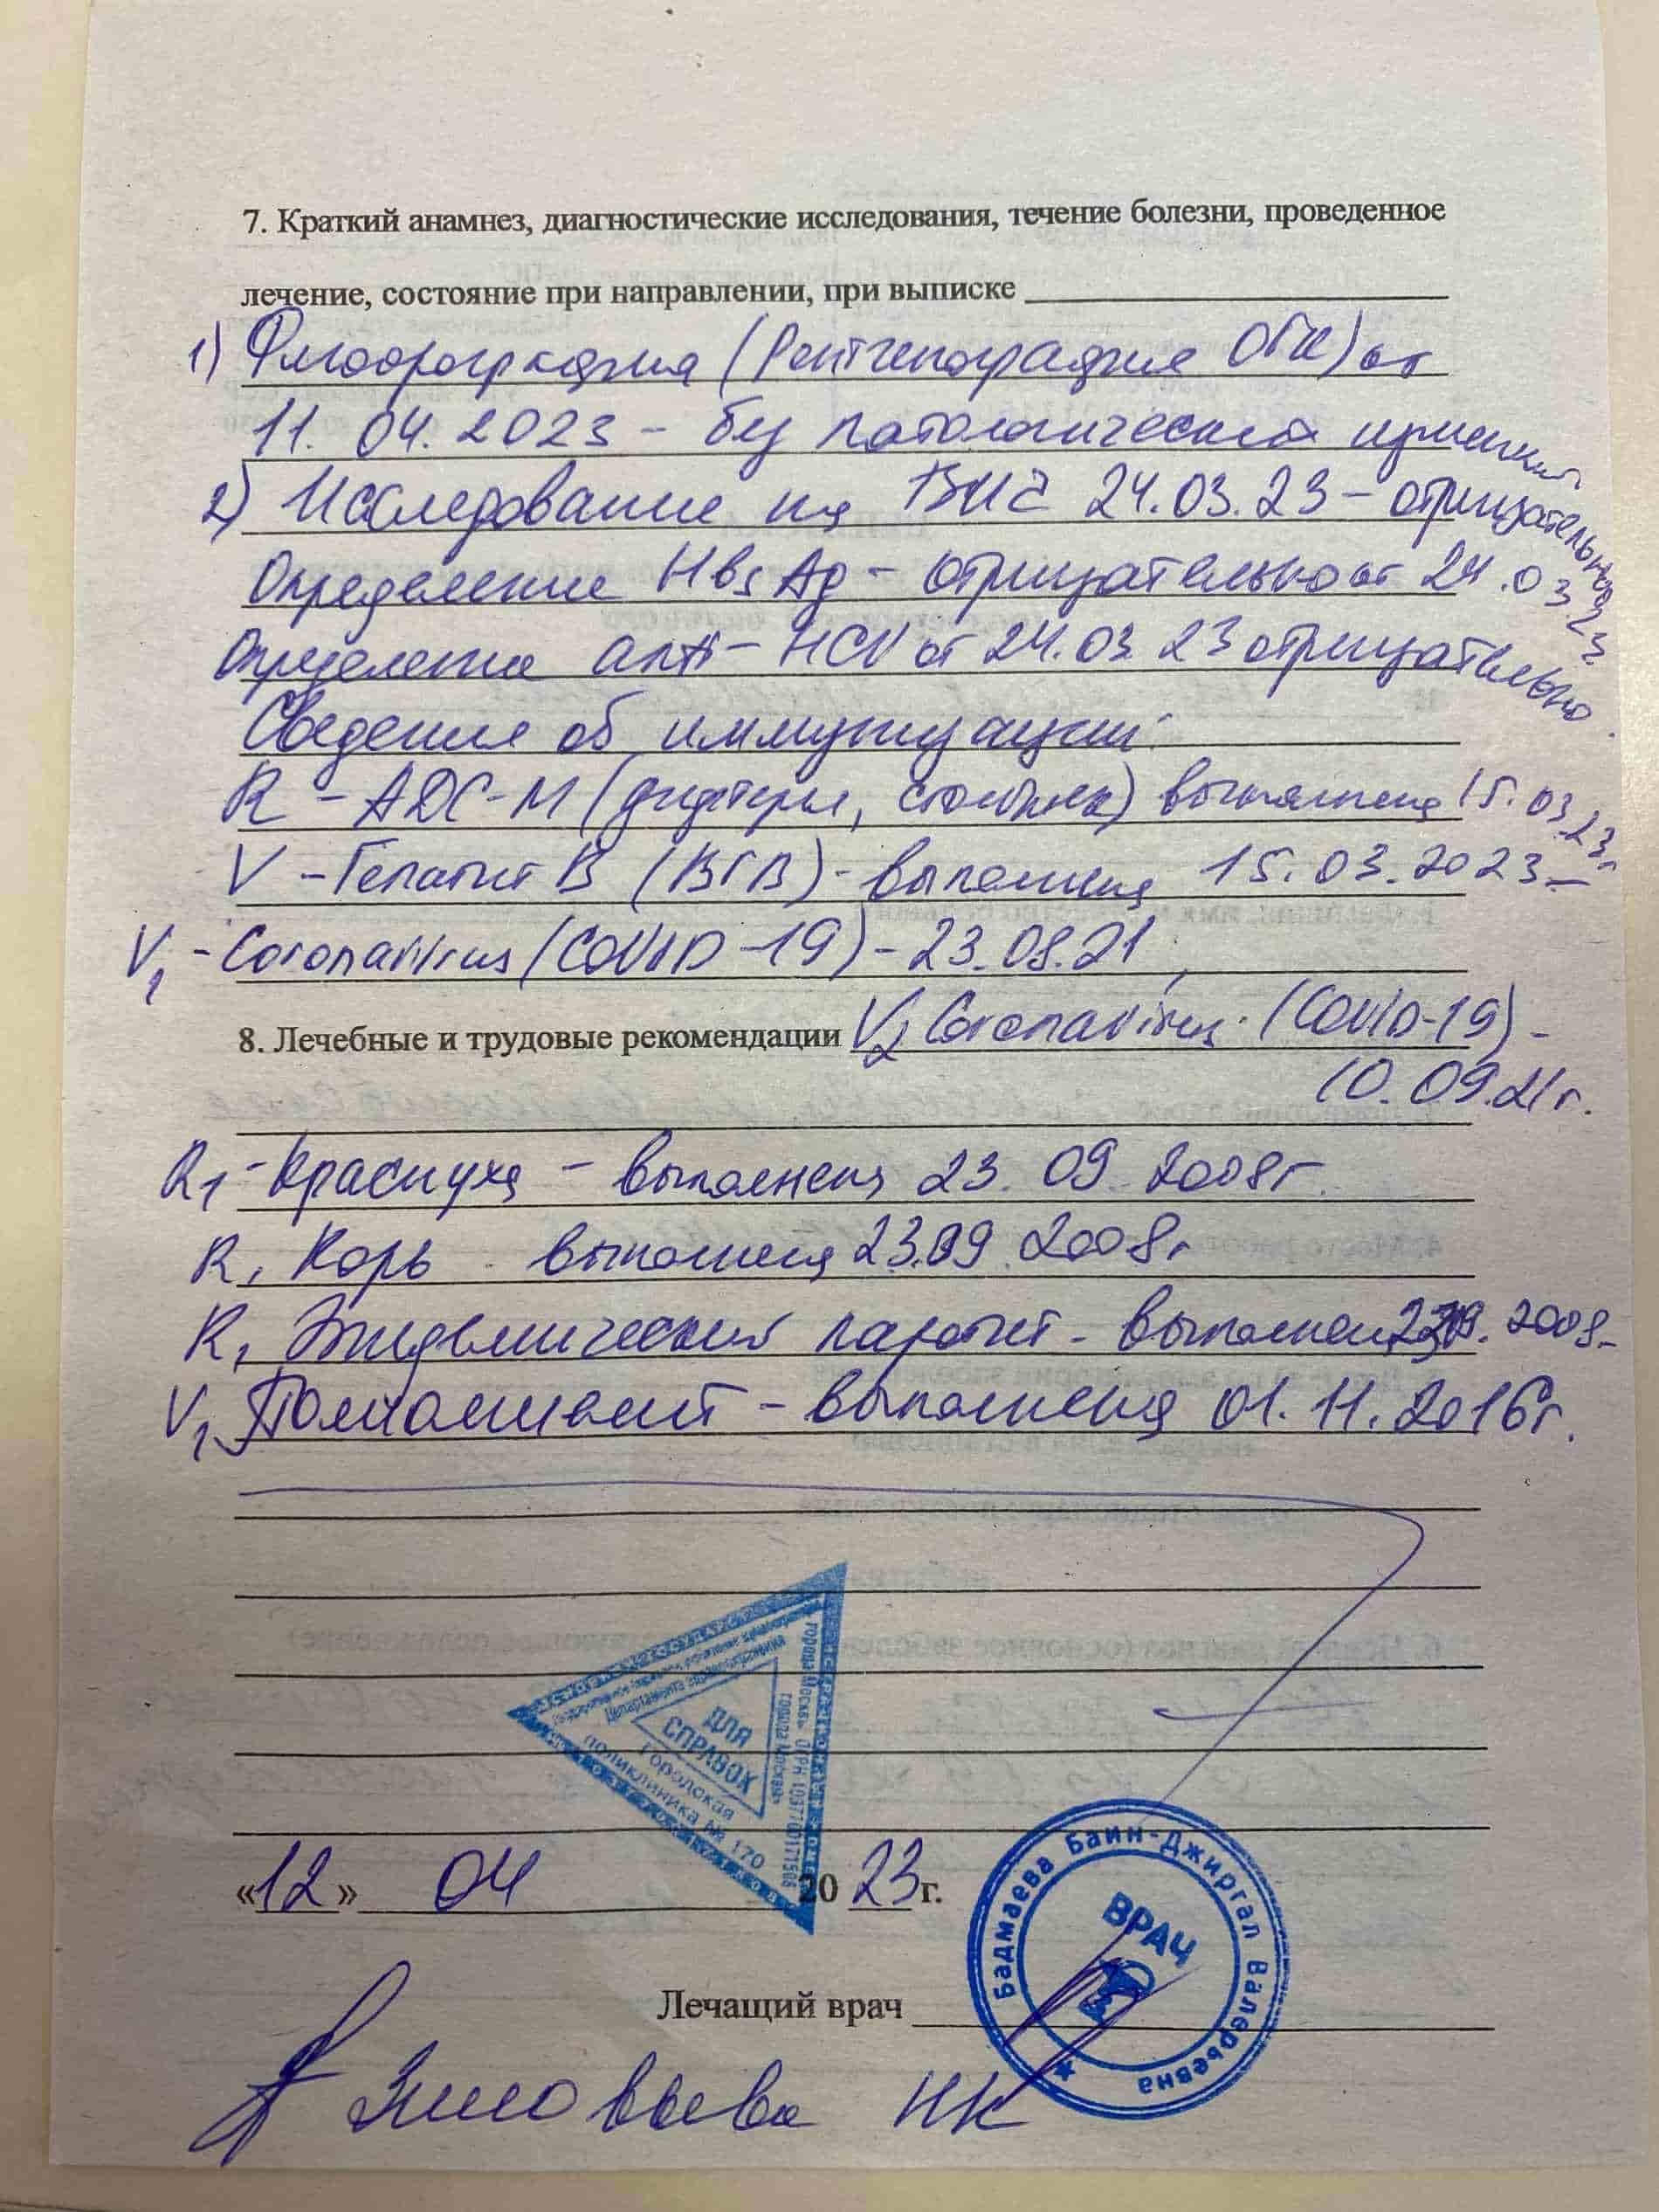 7. Краткий анамнез, диагностические исследования, течение болезни, проведенное
лечение, состояние при направлении, при выписке
1) Флюорография (Рентгенография ОГК) от
11.04.2023 - без патологических изменений
2) Исследование на ВИЧ 24.03.23 - отрицательно
Определение HBsAg - отрицательно от 24.03.23
Определение anti-HCV от 24.03.23 отрицательно.
Сведения об иммунизации:
R - АДС-М (дифтерия, столбняк) выполнена 15.03.23г.
V - Гепатит В (ВГВ) - выполнена 15.03.2023 -
V1 - Coronavirus (COVID-19) - 23.08.21,
8. Лечебные и трудовые рекомендации V2 Coronavirus (COVID-19) -
10.09.21г.
R1 - Краснуха - выполнена 23.09.2008г.
R1 Корь выполнена 23.09.2008г
R1 Эпидемический паротит - выполнена 2008
V1 Полиомиелит - выполнена 01.11.2016г.
ДЛЯ
СПРАВОК
Городская
поликлиника № 170
города Москвы
Департамента здравоохранения
«12» 04 2023г.
Бадмаева Баин-Джиргал Валерьевна
ВРАЧ
Лечащий врач
Зиновьева НК